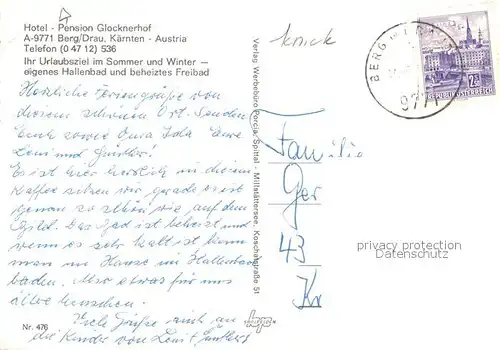 Hotel - Pension Glocknerhof
A-9771 Berg/Drau, Kärnten - Austria
Telefon (0 47 12) 536
Ihr Urlaubsziel im Sommer und Winter —
eigenes Hallenbad und beheiztes Freibad
Herzliche Feriengrüße von
diesem schönen Ort senden
Euch sowie Oma Ida Eure
Leni und Günther!
Es ist hier herrlich in diesem
Kaffee sitzen wir gerade es ist
genau so schön wie auf dem
Bild. Das Bad ist beheizt und
wenn es sehr kalt ist kann
man im Hause im Hallenbad
baden. Also etwas für uns
ältere Menschen.
Viele Grüße auch an
die Kinder von Leni + Günther
Nr. 476
Verlag Werbebüro Porcia, Spittal - Millstättersee, Koschatstraße 51
knick
BERG
9771
REPUBLIK ÖSTERREICH
Familie
Ger
43
Kr
privacy protection
Datenschutz